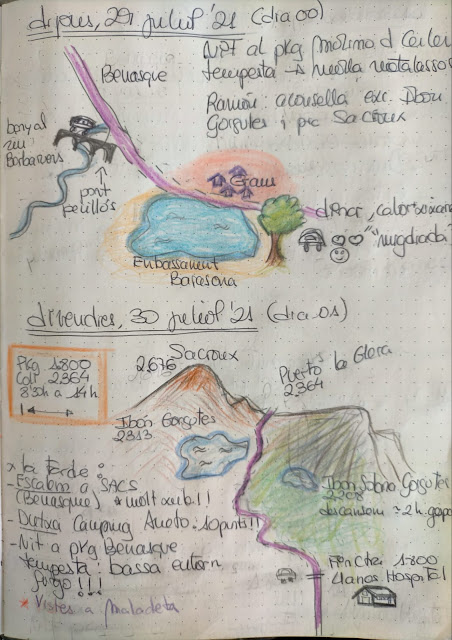 dijous, 29 juliol '21 (dia 00)
Nit al pkg Molino d Cerler
tempesta → molla matalassos
Ramón aconsella exc. Ibón
Gorgutes i pic Sacroux
Benasque
banyal
riu
Barbaruens
pont
perillós
Graus
dinar, calor
"migdiada"
Embassament
Barasona
divendres, 30 juliol '21 (dia 01)
Pkg 1800
Coll 2.364
8'30h a 14h
Sacroux
2.676
Puerto la Glera
2.364
Ibón Gorgutes
2313
Ibón Sobre Gorgutes
2208
descansem ≈ 2h
* la tarde:
- Escalem a SACS
(Benasque) * molt xulo!!
- Dutxa Camping Aneto: 10 punts!!
- Nit a pkg Benasque
tempesta: bassa entorn
furgo!!!
* Vistes a Maladeta
Pàrking 1800
= Llanos Hospital